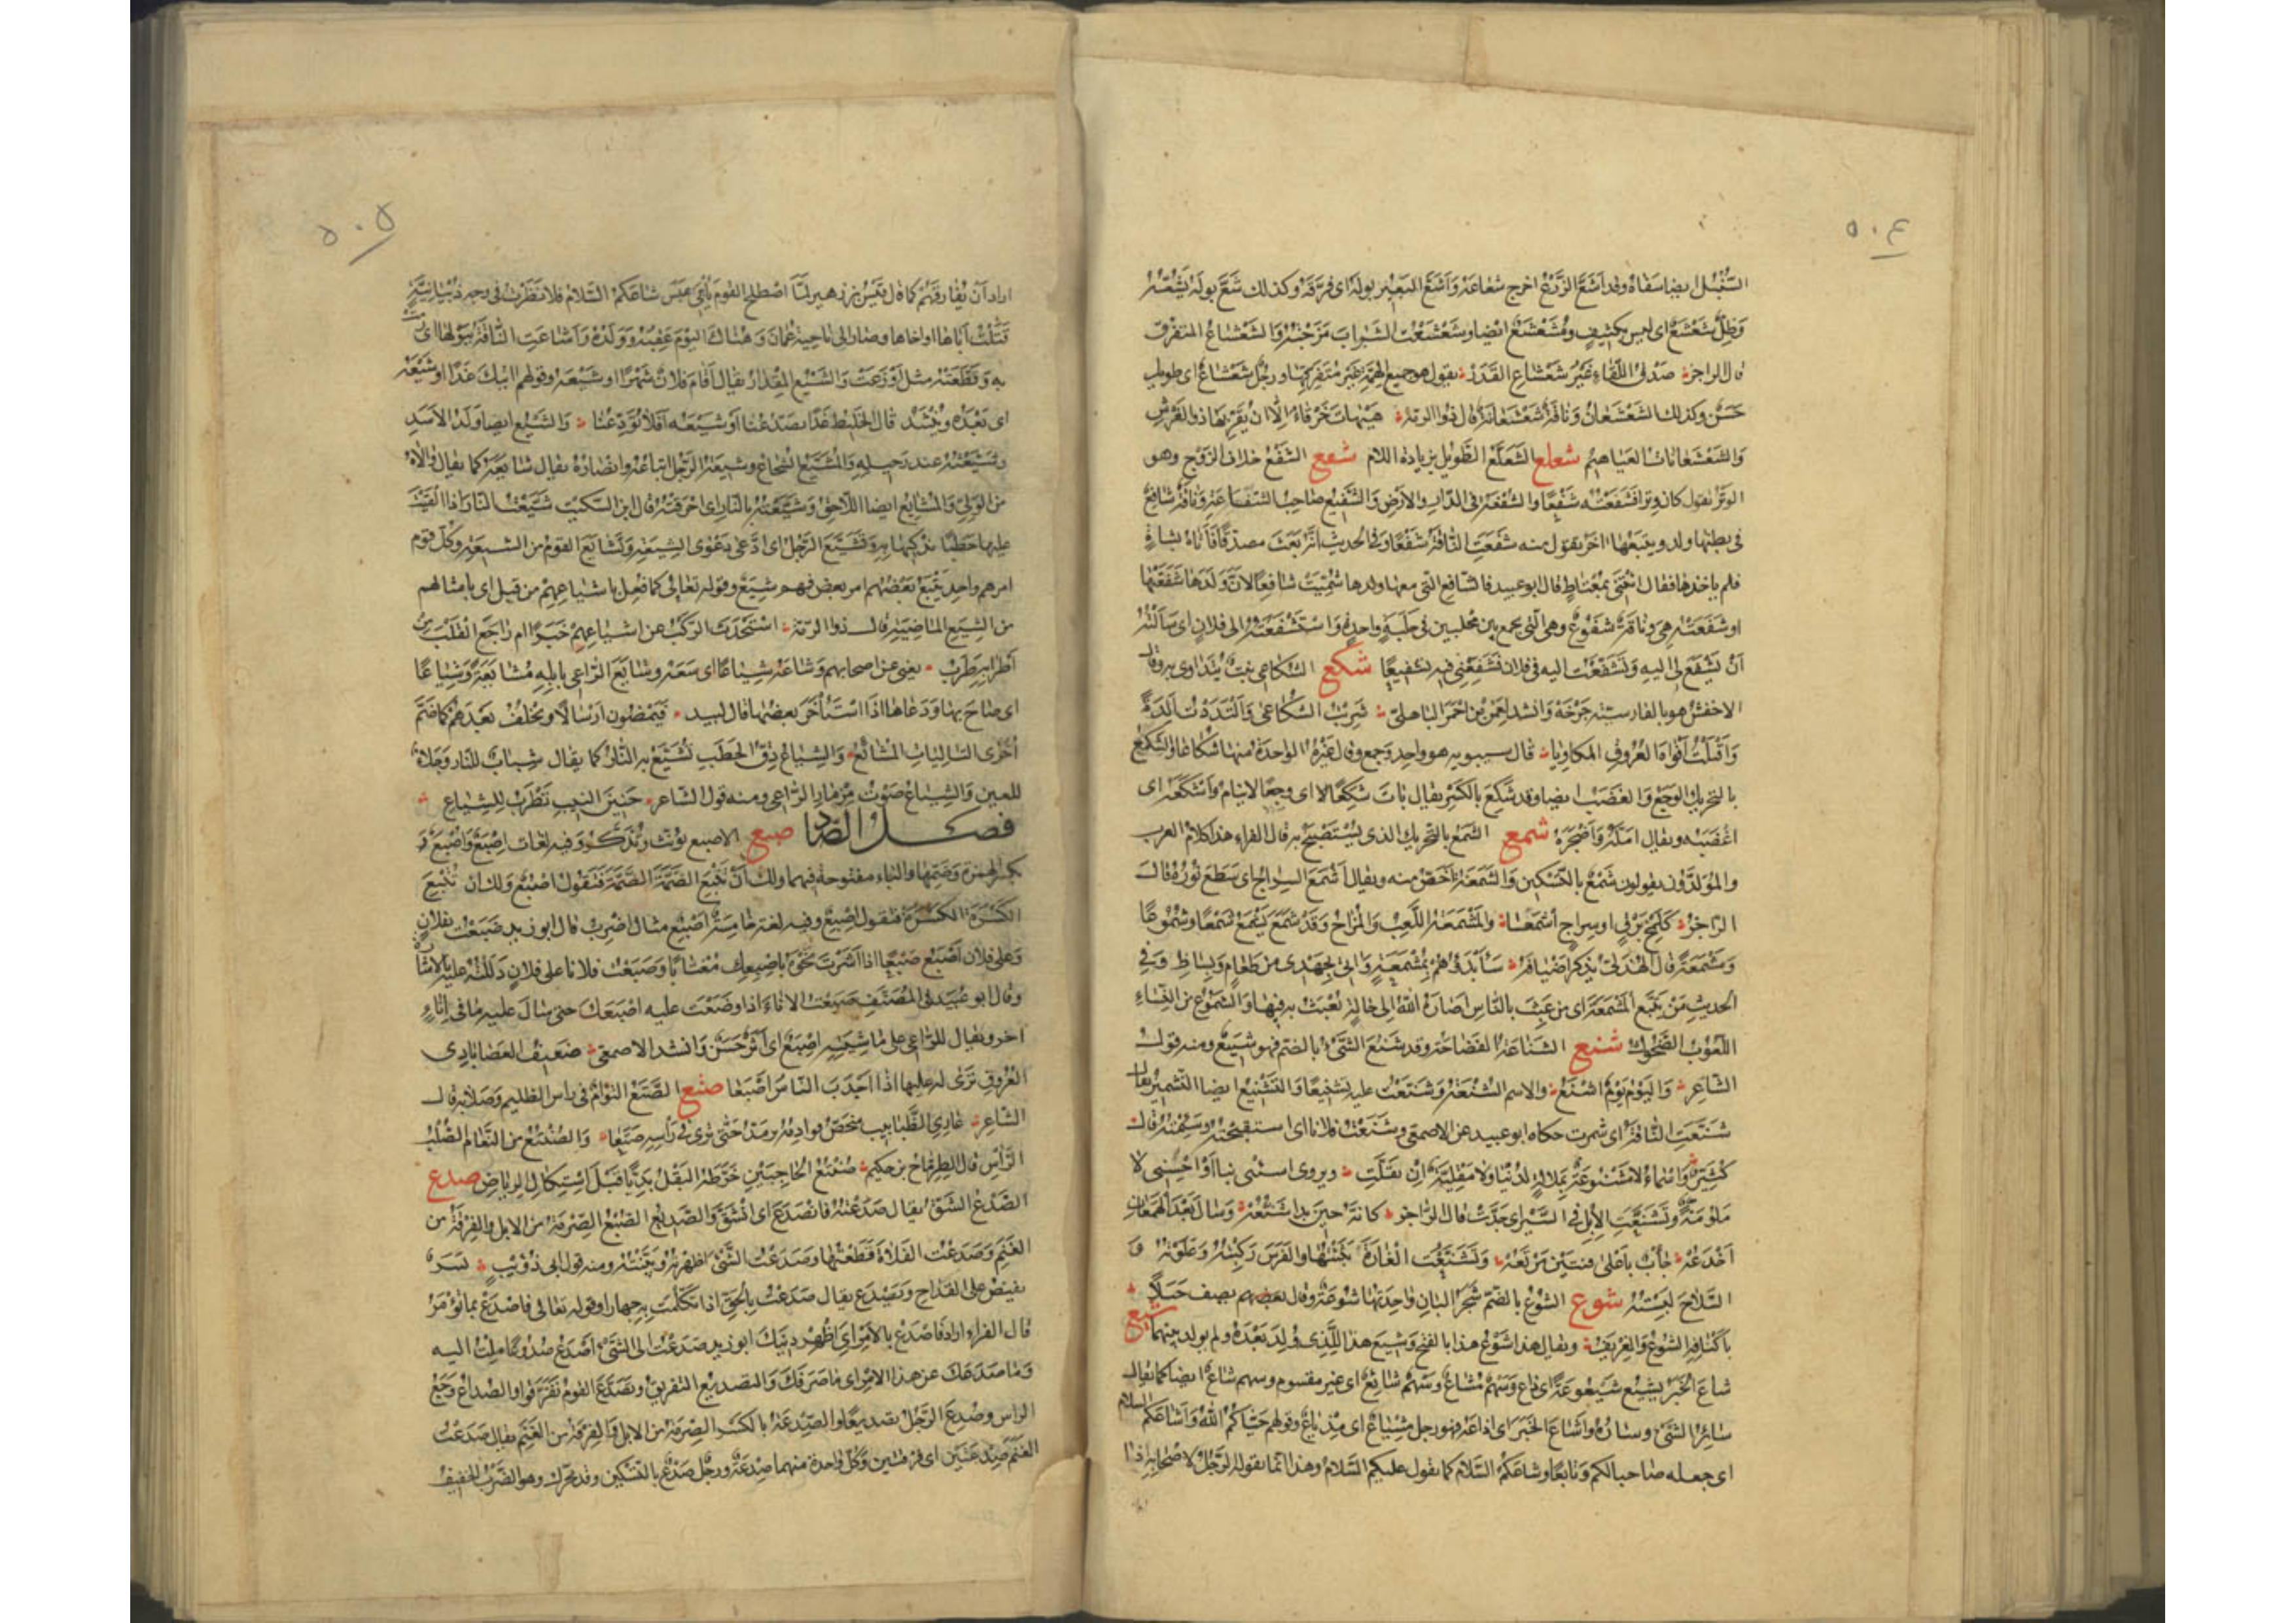 ٥٠٤
السنبل ايضا سفاه وقد اشع الزرع اخرج شعاعه واشع البعير بوله اى فرقه وكذلك شع بوله يشعه
وظل شعشع اى ليس بكثيف ومشعشع ايضا وشعشعت الشراب مزجته والشعشاع المتفرق
قال الراجز صدق اللقاء غير شعشاع الغدر يقول هو جميع الهمة غير متفرقها ورجل شعشاع اى طويل
حسن وكذلك الشعشعان وناقة شعشعانة قال ذو الرمة هيهات خرقاء الا ان يقربها ذو العرش
والشعشعانات العياهيم شعلع الشعلع الطويل بزيادة اللام شفع الشفع خلاف الزوج وهو
الوتر تقول كان وترا فشفعته شفعا والشفعة فى الدار والارض والشفيع صاحب الشفاعة وناقة شافع
فى بطنها ولد ويتبعها اخر تقول منه شفعت الناقة شفعا وفى الحديث انه بعث مصدقا فاتاه بشاة
فلم ياخذها فقال ائتنى بمعتاط قال ابو عبيد فالشافع التى معها ولدها سميت شافعا لان ولدها شفعها
او شفعته هى وناقة شفوع وهى التى تجمع بين محلبين فى حلبة واحدة واستشفعته الى فلان اى سالته
ان يشفع لى اليه وتشفعت اليه فى فلان فشفعنى فيه تشفيعا شكع الشكاعى نبت يتداوى به وقال
الاخفش هو بالفارسية چرخه وانشد لعمرو بن احمر الباهلى شربت الشكاعى والتددت الدة
واقبلت افواه العروق المكاويا قال سيبويه هو واحد وجمع وقال غيره الواحدة منها شكاعاة والشكع
بالتحريك الوجع والغضب ايضا وقد شكع بالكسر يقال بات شكعا اى وجعا لا ينام واشكعه اى
اغضبه ويقال امله واضجره شمع الشمع بالتحريك الذى يستصبح به قال الفراء هذا كلام العرب
والمولدون يقولون شمع بالتسكين والشمعة اخص منه ويقال اشمع السراج اى سطع نوره قال
الراجز كلمح برق او سراج اشمعا والمشمعة اللعب والمزاح وقد شمع يشمع شمعا وشموعا
ومشمعة قال الهذلى يذكر اضيافه سابدؤهم بمشمعة واثنى بجهدى من طعام وبساط وفى
الحديث من تتبع المشمعة اى من عبث بالناس اصاره الله الى حالة يعبث به فيها والشموع من النساء
اللعوب الضحوك شنع الشناعة الفضاعة وقد شنع الشئ بالضم فهو شنيع ومنه قول
الشاعر واليوم يوم اشنع والاسم الشنعة وشنعت عليه تشنيعا والتشنيع ايضا التشمير يقال
شنعت الناقة اى شمرت حكاه ابو عبيد عن الاصمعى وشنعت فلانا اى استقبحته وسئمته قال
كثير واسماء لا مشنوعة بملالة لدينا ولا مقلية ان تقلت ويروى اسيئى بنا او احسنى لا
ملومة وتشنعت الابل فى السير اى جدت قال الراجز كانه حين بدا تشنعه وسال بعد الهمعان
اخدعه جاب باعلى قنتين مرتعه وتشنعت الغارة بثثتها والفرس ركبته وعلوته و
السلاح لبسته شوع الشوع بالضم شجر البان واحدتها شوعة وقال بعضهم يصف جبلا
باكنافه الشوع والغريف ويقال هذا شوع هذا بالفتح وشيع هذا للذى ولد بعده ولم يولد بينهما شيع
شاع الخبر يشيع شيعوعة اى ذاع وسهم مشاع وسهم شائع اى غير مقسوم وسهم شاع ايضا كما يقال
سائر الشئ وساره واشاع الخبر اى اذاعه فهو رجل مشياع اى مذياع وقولهم حياكم الله واشاعكم السلام
اى جعله صاحبا لكم وتابعا وشاعكم السلام كما تقول عليكم السلام وهذا انما يقوله الرجل لاصحابه اذا
٥٠٥
اراد ان يفارقهم كما قال قيس بن زهير لما اصطلح القوم يا بنى عبس شاعكم السلام فلا نظرت فى وجه ذبيانية
قتلت اباها او اخاها وصار الى ناحية عمان وهناك اليوم عقبه وولده واشاعت الناقة ببولها اى رمت
به وقطعته مثل اوزعت والشيع المقدار يقال اقام فلان شهرا او شيعه وقولهم آتيك غدا او شيعه
اى بعده وينشد قال الخليط غدا تصدعنا او شيعه افلا تودعنا والشيع ايضا ولد الاسد
وشيعته عند رحيله والمشيع الشجاع وشيعة الرجل اتباعه وانصاره يقال شايعه كما يقال والاه
من الولى والمشايع ايضا اللاحق وشيعته بالنار اى احرقته قال ابن السكيت شيعت النار اذا القيت
عليها حطبا تذكيها به وتشيع الرجل اى ادعى دعوى الشيعة وتشايع القوم من الشيعة وكل قوم
امرهم واحد يتبع بعضهم امر بعض فهم شيع وقوله تعالى كما فعل باشياعهم من قبل اى بامثالهم
من الشيع الماضية قال ذو الرمة استحدث الركب عن اشياعهم خبرا ام راجع القلب من
اطرابه طرب يعنى عن اصحابهم وشاعه شياعا اى تبعه وشايع الراعى بابله مشايعة وشياعا
اى صاح بها ودعاها اذا استاخر بعضها قال لبيد فيمضون ارسالا ونخلف بعدهم كما ضم
اخرى التاليات المشايع والشياع دق الحطب تشيع به النار كما يقال شباب للنار وجلاء
للعين والشياع صوت مزمار الراعى ومنه قول الشاعر حنين النيب تطرب للشياع
فصل الصاد صبع الاصبع يؤنث ويذكر وفيه لغات اصبع واصبع و
بكسر الهمزة وضمها والباء مفتوحة فيهما ولك ان تتبع الضمة الضمة فتقول اصبع ولك ان تتبع
الكسرة الكسرة فتقول اصبع وفيه لغة خامسة اصبع مثال اضرب قال ابو زيد صبعت بفلان
وعلى فلان اصبع صبعا اذا اشرت نحوه باصبعك مغتابا وصبعت فلانا على فلان دللته عليه بالاشارة
وقال ابو عبيد فى المصنف صبعت الاناء اذا وضعت عليه اصبعك حتى سال عليه ما فى اناء
آخر ويقال للراعى على ماشيته اصبع اى اثر حسن وانشد الاصمعى ضعيف العصا بادى
العروق ترى له عليها اذا اجدب الناس اصبعا صتع الصتع التوام فى راس الظليم وصلابة قال
الشاعر عارى الظنابيب منحص قوادمه يرمد حتى ترى فى راسه صتعا والصنتع من النعام الصلب
الراس قال الطرماح بن حكيم صنتع الحاجبين خرطه البقل بديا قبل استكاك الرياض صدع
الصدع الشق يقال صدعته فانصدع اى انشق والصديع الصبح والصرمة من الابل والفرقة من
الغنم وصدعت الفلاة قطعتها وصدعت الشئ اظهرته وبينته ومنه قول ابى ذؤيب يسر
يفيض على القداح ويصدع يقال صدعت بالحق اذا تكلمت به جهارا وقوله تعالى فاصدع بما تؤمر
قال الفراء اراد فاصدع بالامر اى اظهر دينك ابو زيد صدعت الى الشئ اصدع صدوعا ملت اليه
وما صدعك عن هذا الامر اى ما صرفك والتصديع التفريق وتصدع القوم تفرقوا والصداع وجع
الراس وصدع الرجل تصديعا والصدعة بالكسر الصرمة من الابل والفرقة من الغنم يقال صدعت
الغنم صدعتين اى فرقتين وكل واحدة منهما صدعة ورجل صدع بالتسكين وقد يحرك وهو الضرب الخفيف